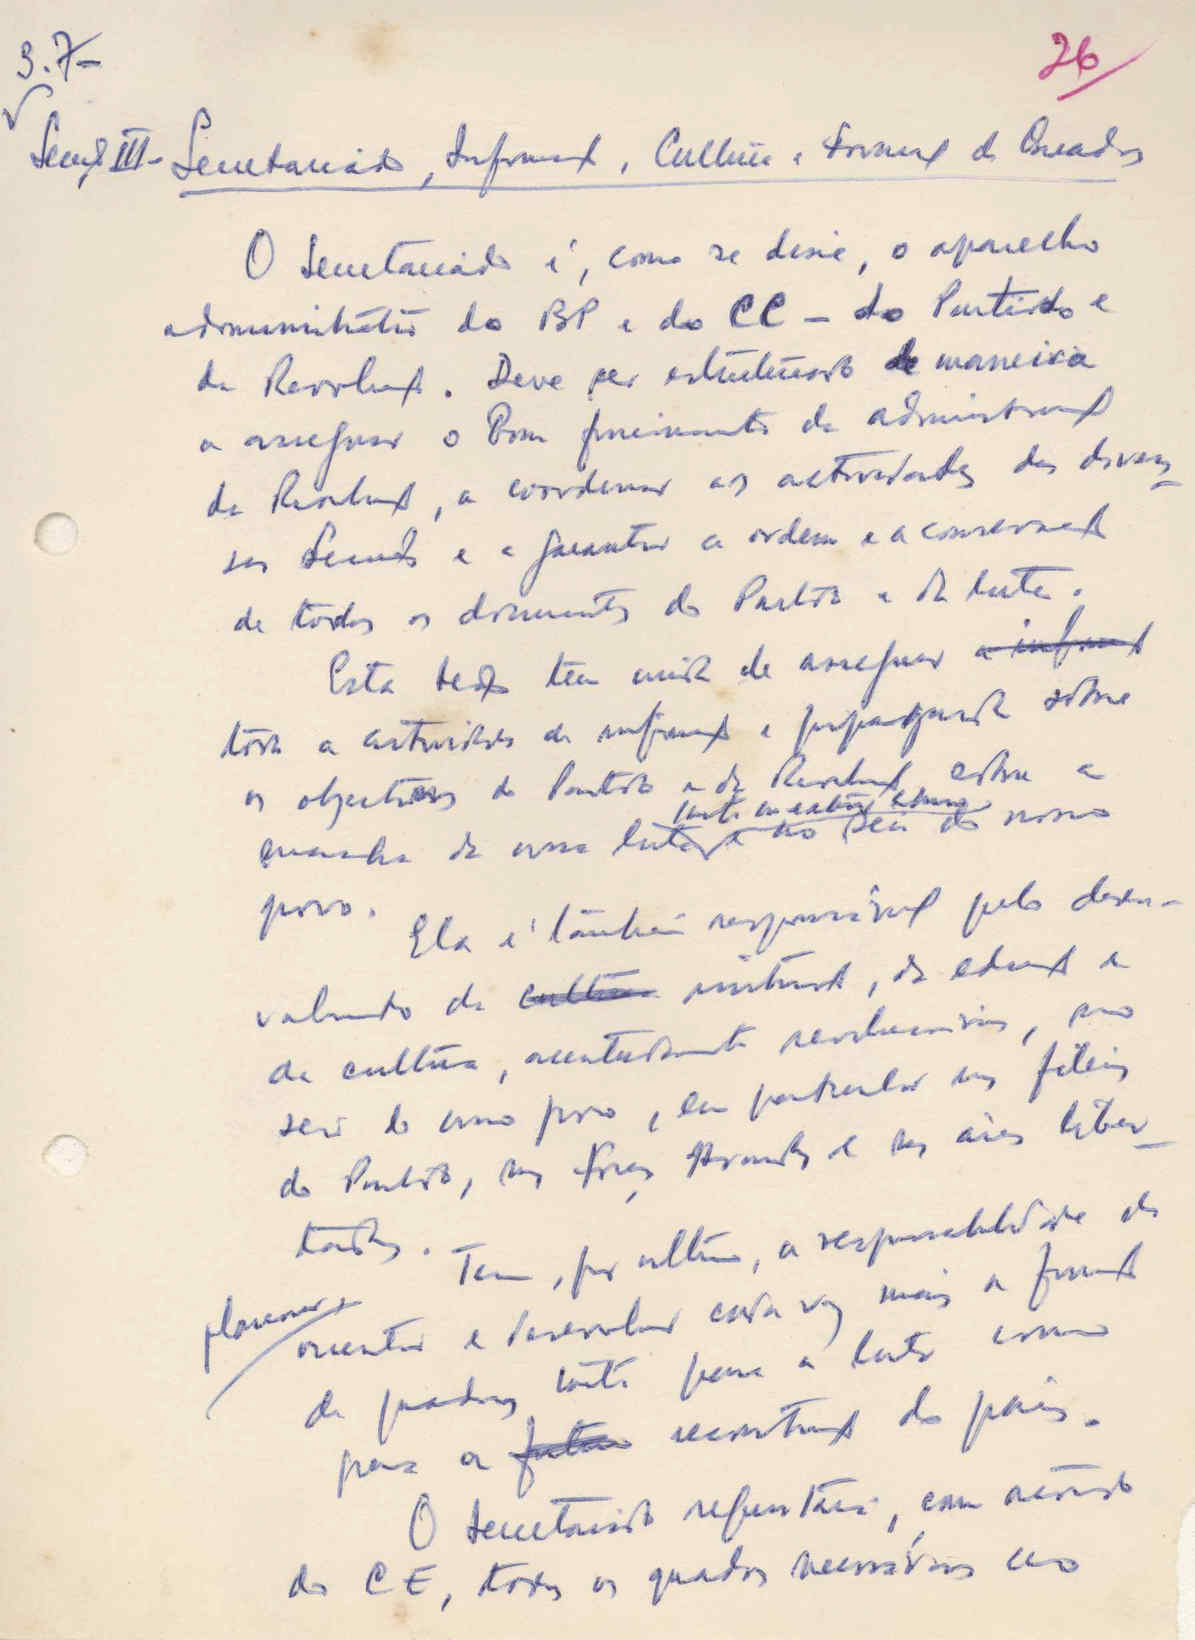 3.7-
26
Secç. III - Secretariado, Informaç, Cultura e Formaç de Quadros
O Secretariado é, como se disse, o aparelho
administrativo do BP e do CC - do Partido e
da Revoluç. Deve ser estruturado de maneira
a assegurar o bom funcionamento da administraç
da Revoluç, a coordenar as actividades das diver-
sas Secções e a garantir a ordem e a conservaç
de todos os documentos do Partido e da luta.
Esta secç tem ainda de assegurar a informaç
toda a actividade de informaç e propaganda sobre
os objectivos do Partido e da Revoluç, sobre a
tanto no exterior como
marcha da nossa luta, no seio do nosso
povo.
Ela é também responsável pelo desen-
volvimento da cultura instruç, da educaç e
da cultura, revolucionária, no
seio do nosso povo, em particular nas fileiras
do Partido, nas Forças Armadas e nas áreas liber-
tadas.
Tem, por último, a responsabilidade de
planear
orientar e desenvolver cada vez mais a formaç
de quadros tanto para a luta como
para a futura reconstruç do país.
O Secretariado, com acordo
do CE, todos os quadros necessários ao